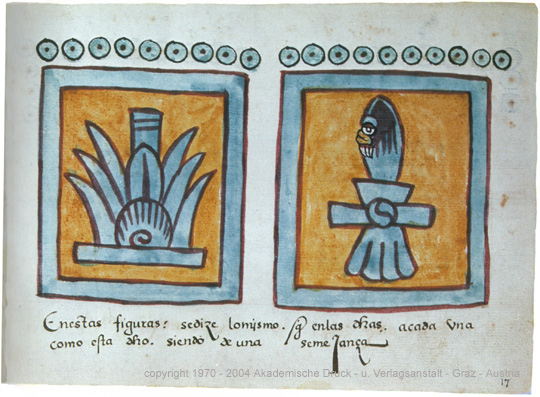 Enestas figuras: sedize lomismo. q̃ enlas dhas. acada vna
como esta dho. siendo de una semejança
copyright 1970 - 2004 Akademische Druck - u. Verlagsanstalt - Graz - Austria
17